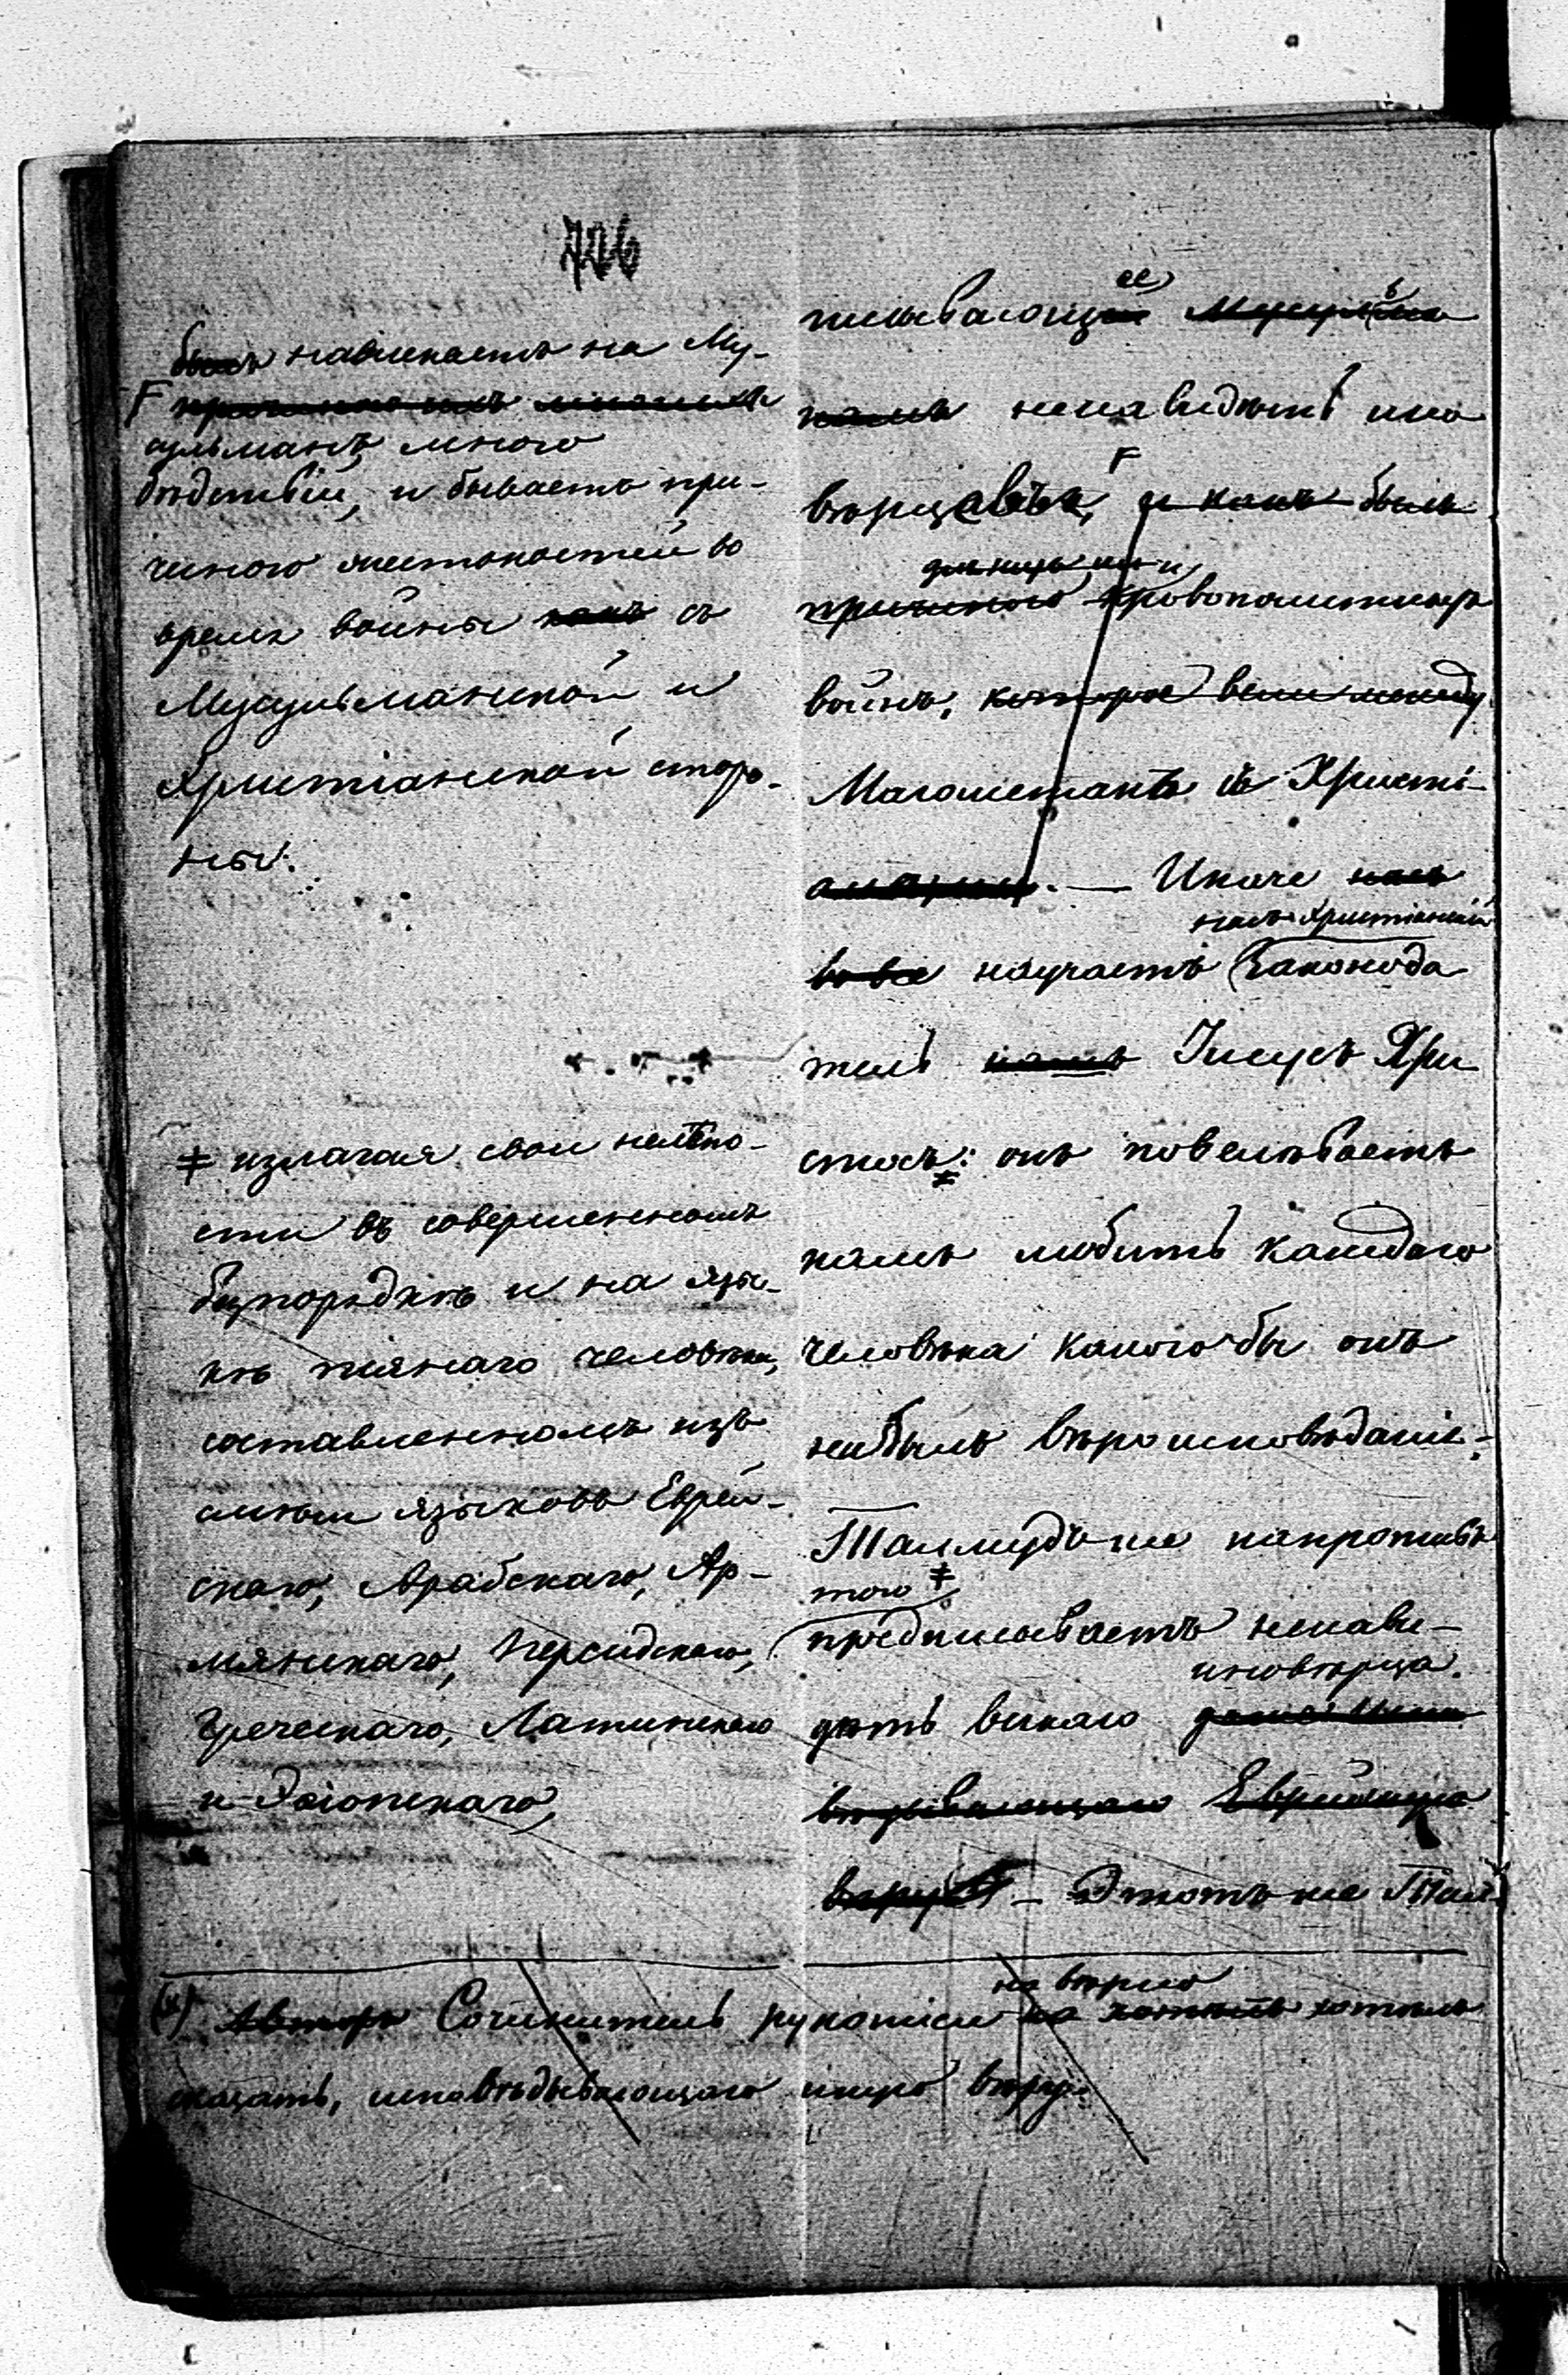 726
былъ навлекаетъ на Му-
сульманъ много
бѣдствій, и бываетъ при-
чиною жестокостей во
время войны какъ съ
Мусульманской и
Христіанской сторо-
ны.
≠ излагая свои нелѣпо-
сти въ совершенномъ
безпорядкѣ и на язы-
кѣ пьянаго человѣка,
составленномъ изъ
смѣси языковъ Еврей-
скаго, Арабскаго, Ар-
мянскаго, Персидскаго,
Греческаго, Латинскаго
и Эѳіопскаго,
ее
писывающ
намъ ненавидѣть ино
вѣрцевъ, и какъ былъ
причиною кровопролитныхъ
войнъ, которое вели между
Магометанъ и Христі-
анами. — Иначе насъ
насъ Христіанскій
во все научаетъ Законода
тель нашъ Іисусъ Хри
стосъ: онъ повелѣваетъ
намъ любить каждаго
человѣка какого бы онъ
небылъ вѣроисповѣданія:
Талмудъ же напротивъ
того ≠
предписываетъ ненави-
иновѣрца.
дѣть всякаго
Еврейскую
вѣру — Этотъ же Тал
но вѣрно
(х) Авторъ Сочинитель рукописи хотѣлъ
сказать, исповѣдывающаго иную вѣру.